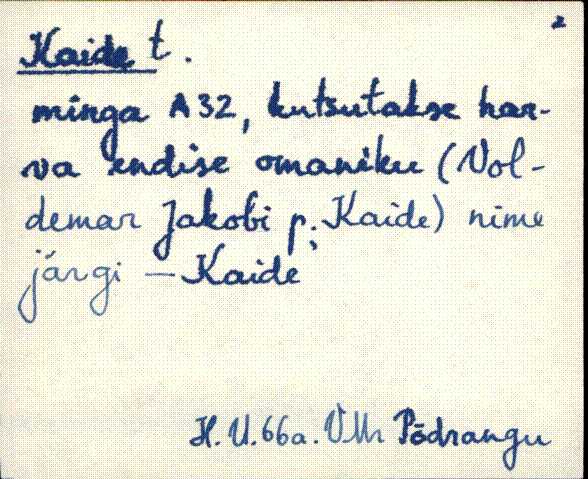 Kaide t.
minga A32, kutsutakse har-
va endise omaniku (Vol-
demar Jakobi p. Kaide) nime
järgi – Kaide
H. U. 66a. VMr Põdrangu